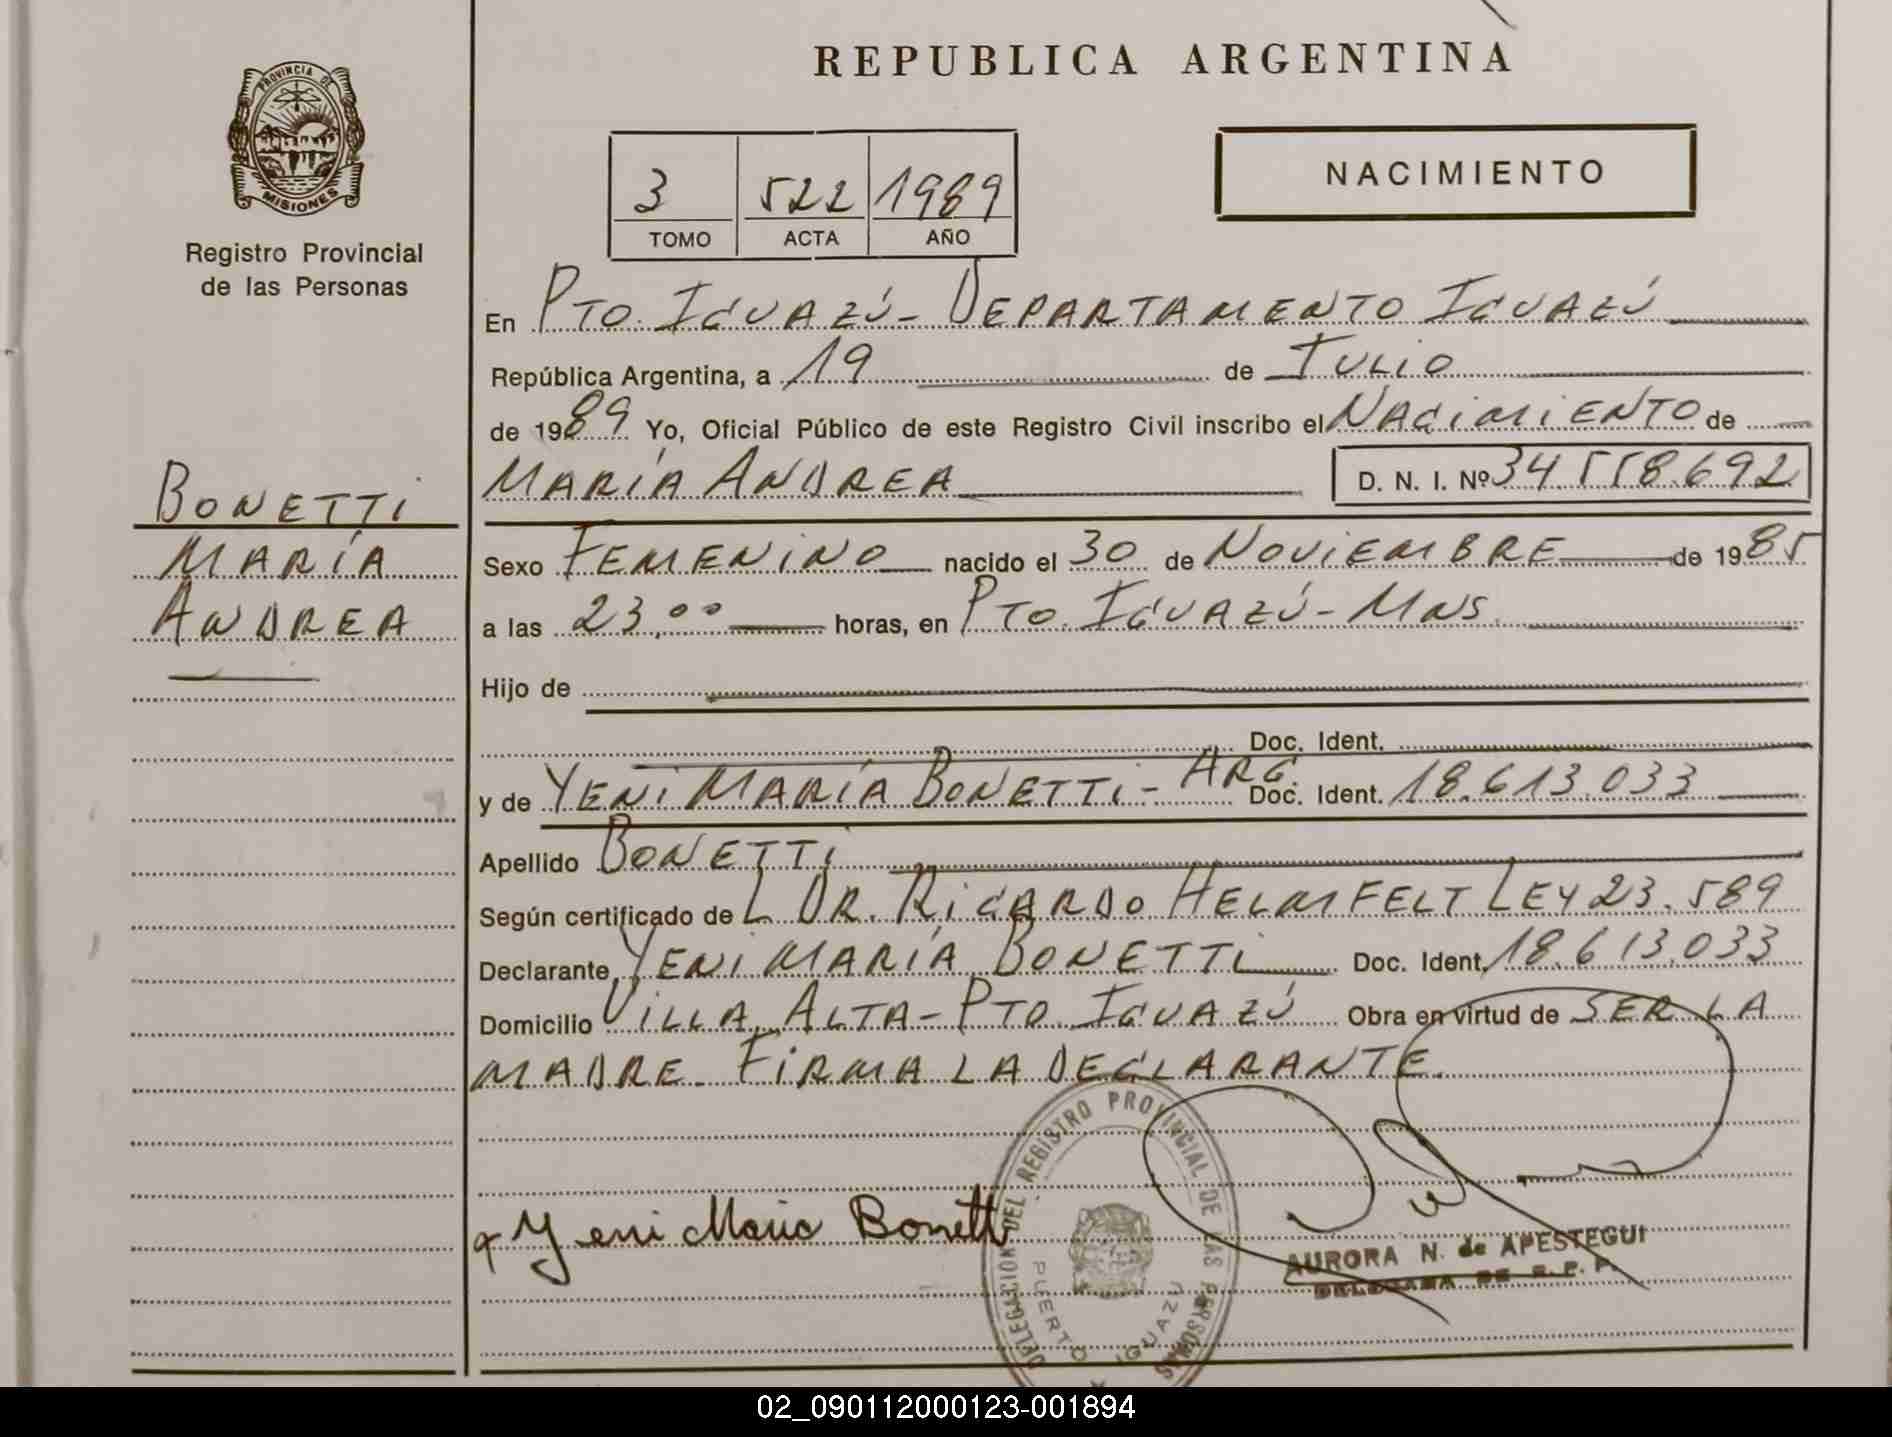 REPUBLICA ARGENTINA
PROVINCIA DE
MISIONES
Registro Provincial
de las Personas
3 522 1989
TOMO ACTA AÑO
NACIMIENTO
En PTO. IGUAZÚ - DEPARTAMENTO IGUAZÚ
República Argentina, a 19 de JULIO
de 1989 Yo, Oficial Público de este Registro Civil inscribo el NACIMIENTO de
MARÍA ANDREA D. N. I. Nº 34.558.692
BONETTI
MARÍA
ANDREA
Sexo FEMENINO nacido el 30 de NOVIEMBRE de 1985
a las 23,00 horas, en PTO. IGUAZÚ - MNS.
Hijo de
Doc. Ident.
y de YENI MARÍA BONETTI - ARG. Doc. Ident. 18.613.033
Apellido BONETTI
Según certificado de L DR. RICARDO HELMFELT LEY 23.589
Declarante YENI MARÍA BONETTI Doc. Ident. 18.613.033
Domicilio VILLA ALTA - PTO. IGUAZÚ Obra en virtud de SER LA
MADRE. FIRMA LA DECLARANTE.
Yeni Maria Bonetti
DELEGACION DEL REGISTRO PROVINCIAL DE LAS PERSONAS
PUERTO IGUAZU
AURORA N. de APESTEGUI
DELEGADA DE R. P. P.
02_090112000123-001894